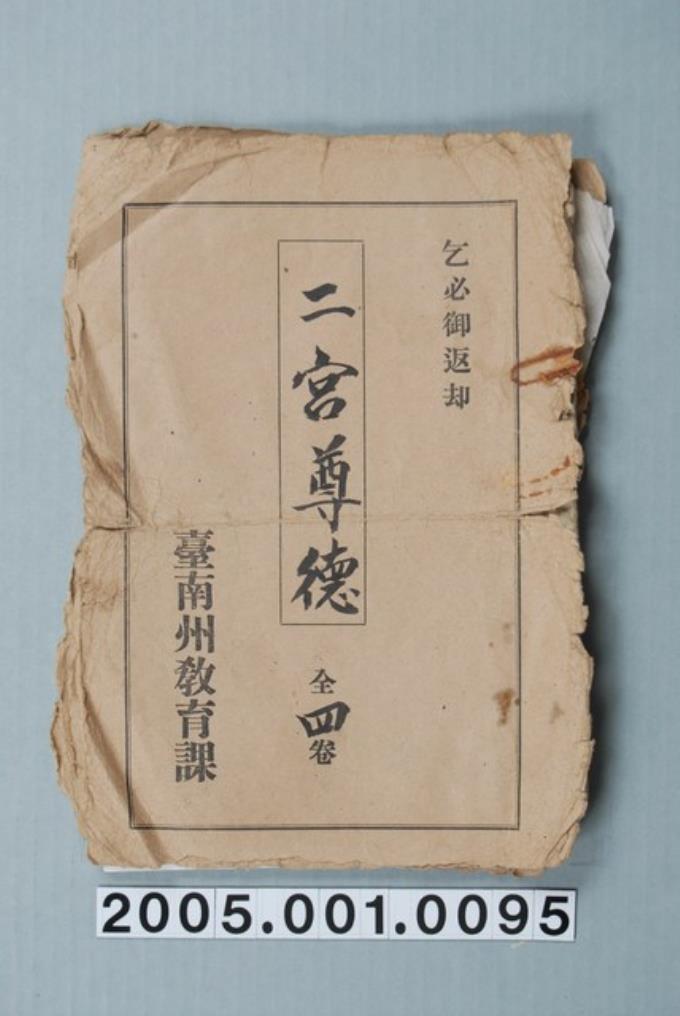 乞必御返却
二宮尊德
全四卷
臺南州敎育課
2005.001.0095